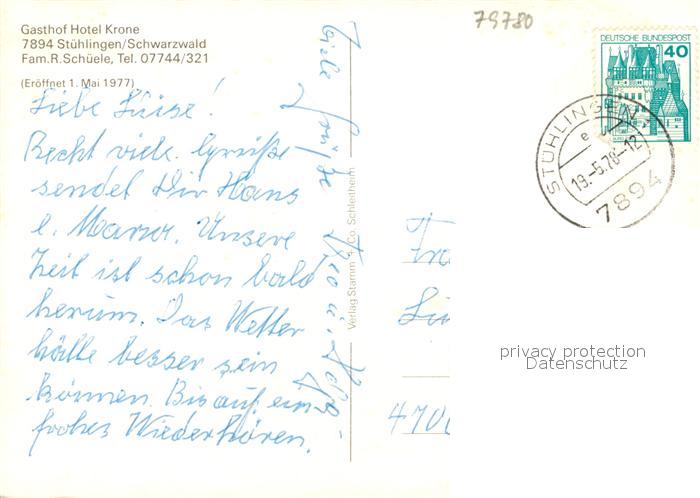 Gasthof Hotel Krone
7894 Stühlingen/Schwarzwald
Fam.R.Schüele, Tel. 07744/321
(Eröffnet 1. Mai 1977)
79780
DEUTSCHE BUNDESPOST
40
STÜHLINGEN
e
19.-5.78-12
7894
Liebe Luise!
Recht viele Grüße
sendet Dir Hans
Unsere
Zeit ist schon bald
herum. Das Wetter
hätte besser sein
können. Bis auf ein
frohes Wiederhören.
Viele Grüße
Verlag Stamm + Co. Schleitheim
Fra
470
privacy protection
Datenschutz